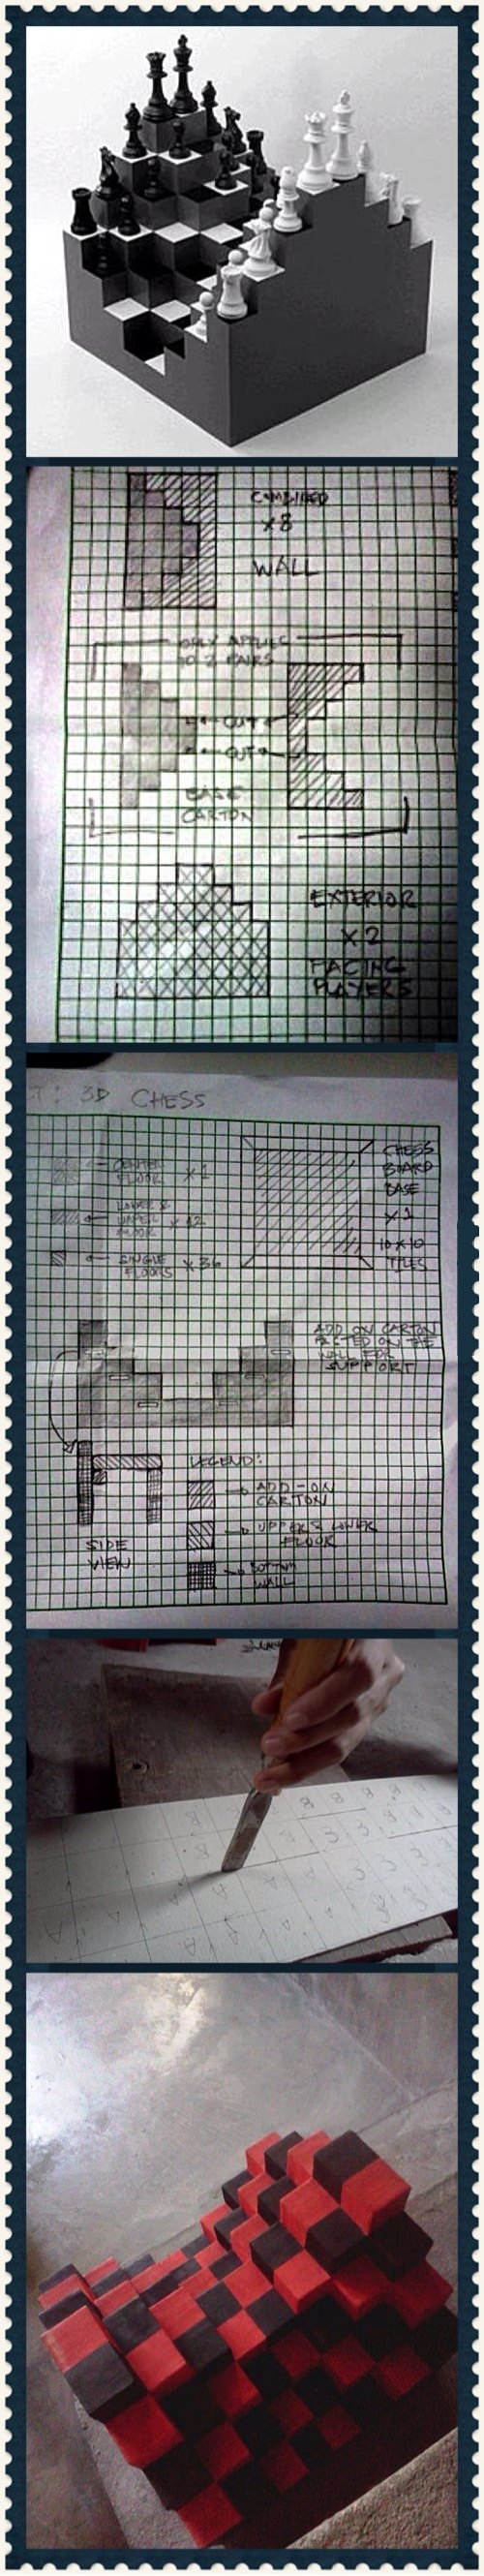 COMBINED
x8
WALL
ONLY APPLIES
TO 2 PAIRS
CUT
CUT
BASE
CARTON
EXTERIOR
x2
FACING
PLAYERS
T: 3D CHESS
CENTER
FLOOR x1
LOWER &
UPPER x12
FLOOR
SINGLE x36
FLOORS
CHESS
BOARD
BASE
x1
10x10
TILES
ADD ON CARTON
PASTED ON THE
WALL FOR
SUPPORT
LEGEND:
ADD-ON
CARTON
UPPER & LOWER
FLOOR
BOTTOM
WALL
SIDE
VIEW